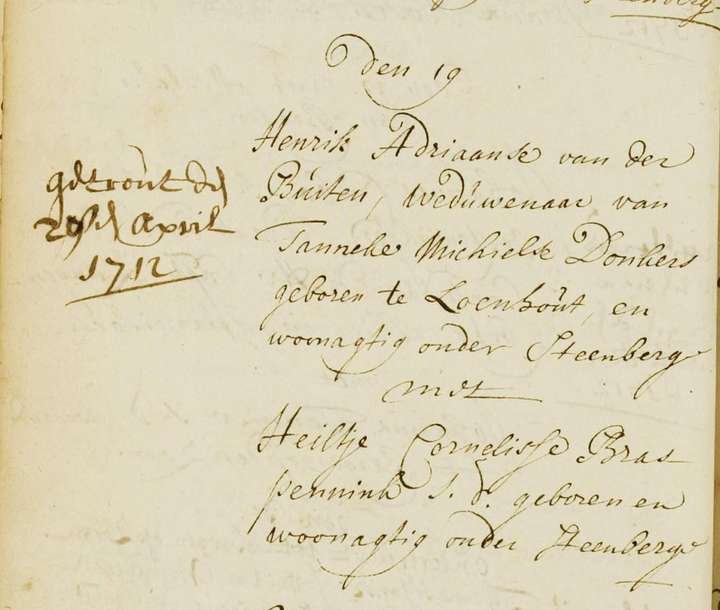 den 19
getrout den
29sten April
1712
Henrik Adriaanse van der
Büiten, Wedüwenaar van
Tanneke Michielse Donkers
geboren te Loenhoüt, en
woonagtig onder Steenberge
met
Heiltje Cornelisse Bras
pennink J. d. geboren en
woonagtig onder Steenberge